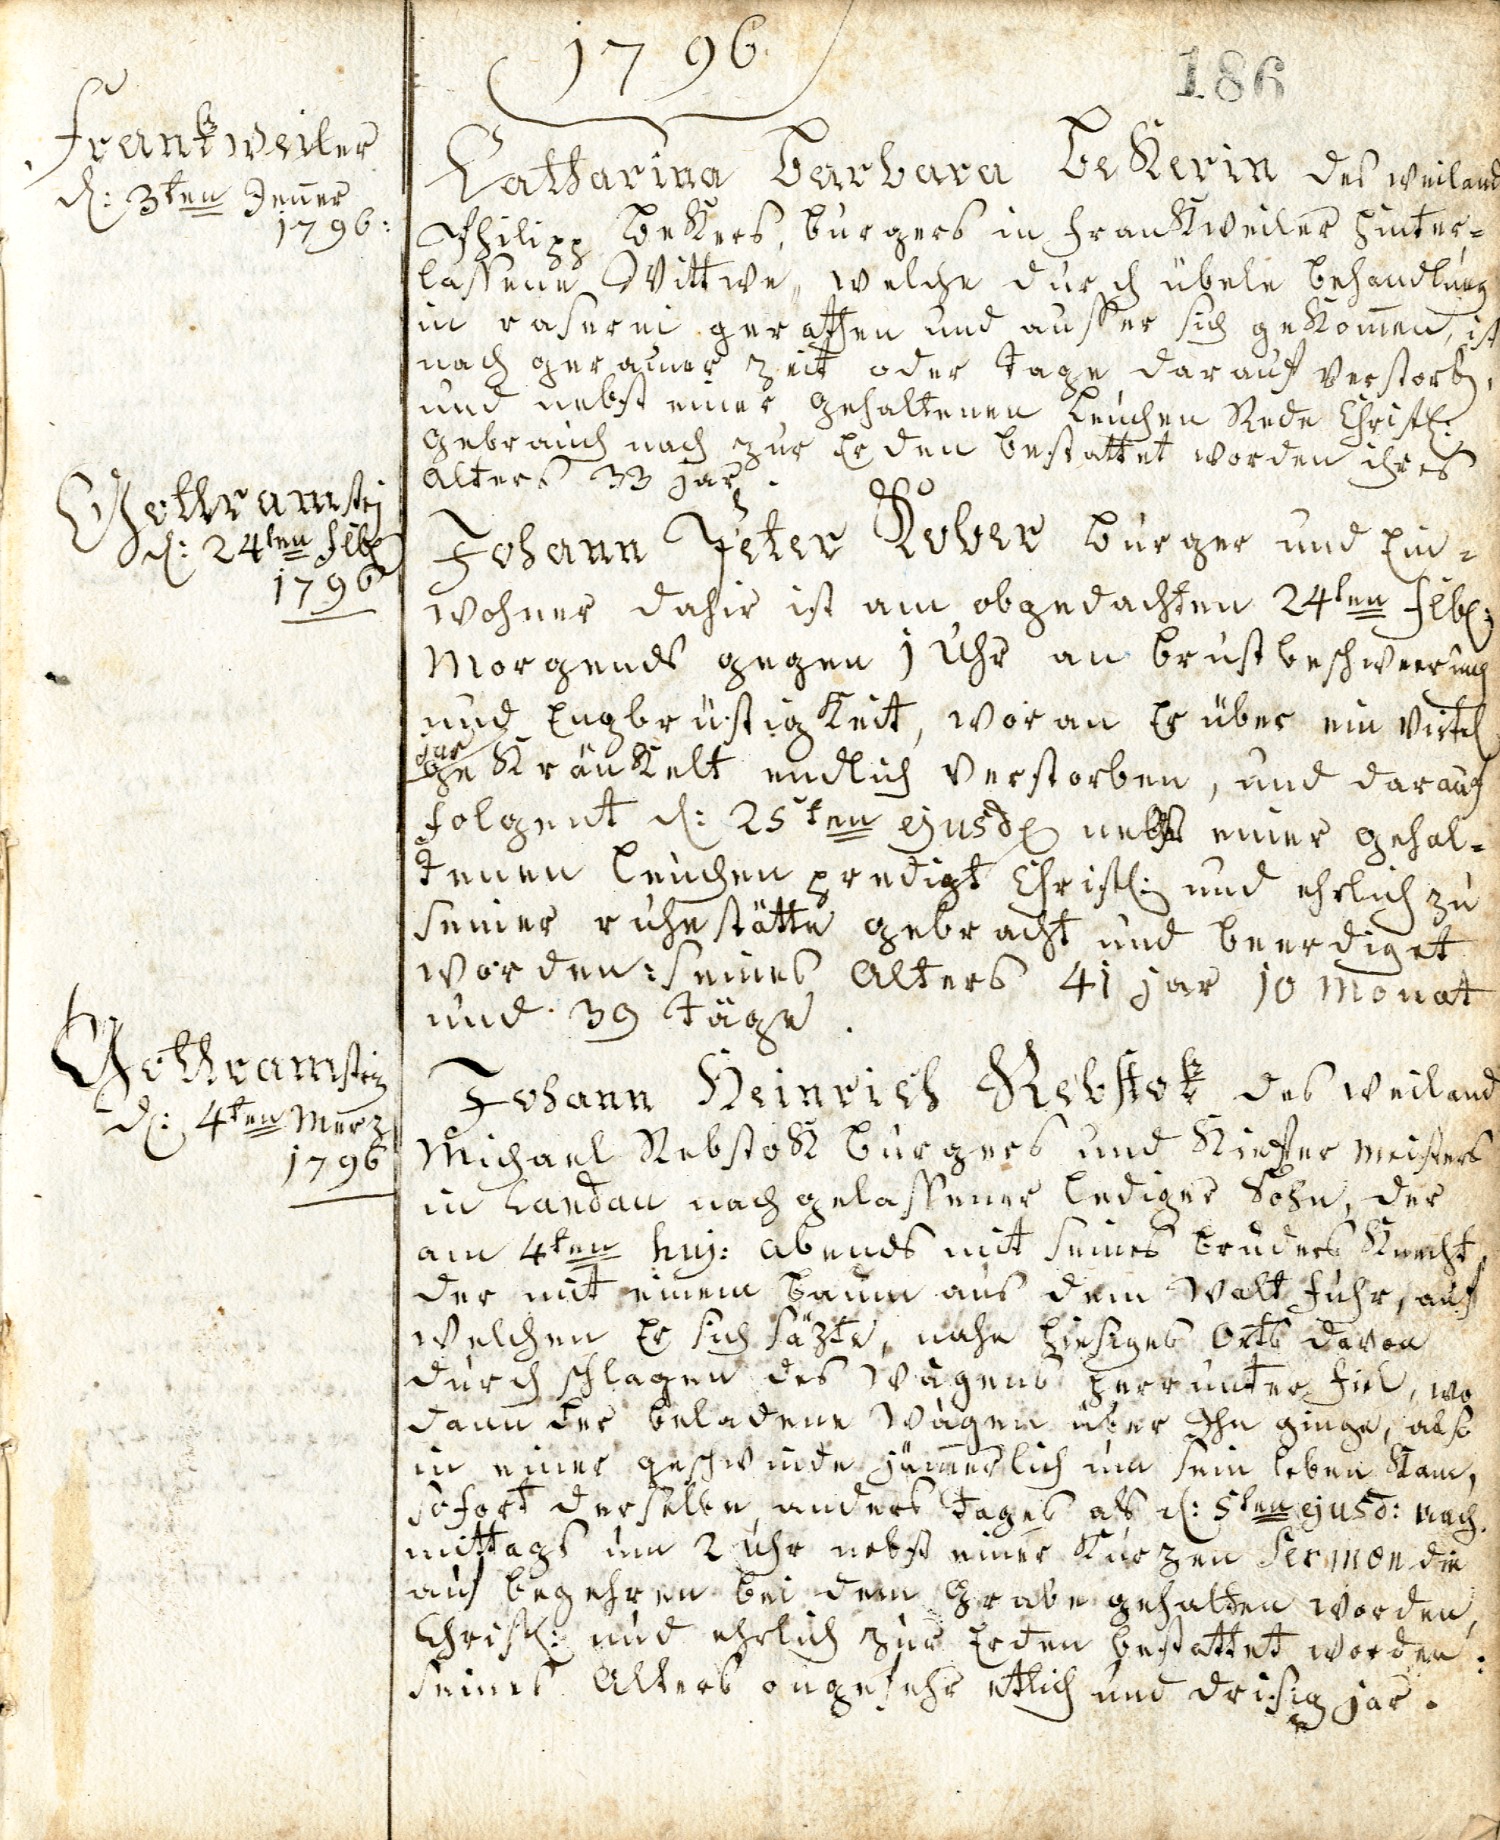 1796
186
Frankweiler
d: 3ten Jenner
1796:
Catharina Barbara Bekerin des weiland
Philipp Bekers, burgers in Frankweiler hinter=
lassene Wittwe, welche durch übele behandlung
in raserei gerathen und ausser sich gekommen, ist
nach geraumer zeit oder tage darauf verstorb,
und nebst einer gehaltenen Leichen Rede Christl:
gebrauch nach zur Erden bestattet worden ihres
alters 33 jar.
Gothramstein
d: 24ten Feb
1796
Johann Peter Kober burger und Ein=
wohner dahir ist am obgedachten 24ten Feb:
Morgends gegen 1 Uhr an brustbeschweerung
und Engbrüstigkeit, woran Er über ein virtel
jar
gekränkelt endlich verstorben, und darauf
folgent d: 25ten ejusd nebst einer gehal=
tenen Leichen predigt Christl: und ehrlich zu
seiner ruhestätte gebracht und beerdiget
worden: seines Alters 41 jar 10 Monat
und 39 täge.
Gothramstein
d: 4ten Merz
1796
Johann Heinrich Rebstok des weiland
Michael Rebstok burgers und Kiefer meisters
in Landau nachgelassener lediger Sohn, der
am 4ten huj: abends mit seines bruders Knecht,
der mit einem baum aus dem Walt fuhr, auf
welchen Er sich säzte, nahe hiesiges Orts davon
durch schlagen des Wagens herrunter fiel, wo
dann der beladene Wagen über Ihn ginge, also
in einer geschwinde jämmerlich um sein leben kam,
sofort derselbe anders tages als d: 5ten ejusd: nach
mittags um 2 Uhr nebst einer kurzen Sermon die
auf begehren bei dem Grabe gehalten worden,
Christl: und ehrlich zur Erden bestattet worden:
seines Alters ongefehr etlich und drisig jar.